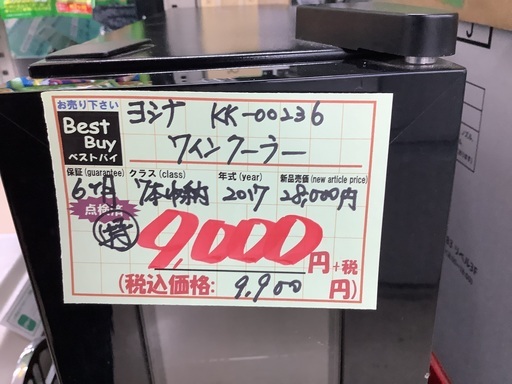 お売り下さい
Best
Buy
ベストバイ
ヨシナ KK-00236
ワインクーラー
保証(guarantee) クラス(class) 年式(year) 新品売価(new article price)
6ヶ月 7本収納 2017 28,000円
点検済
特 9,000円+税
(税込価格: 9,900 円)